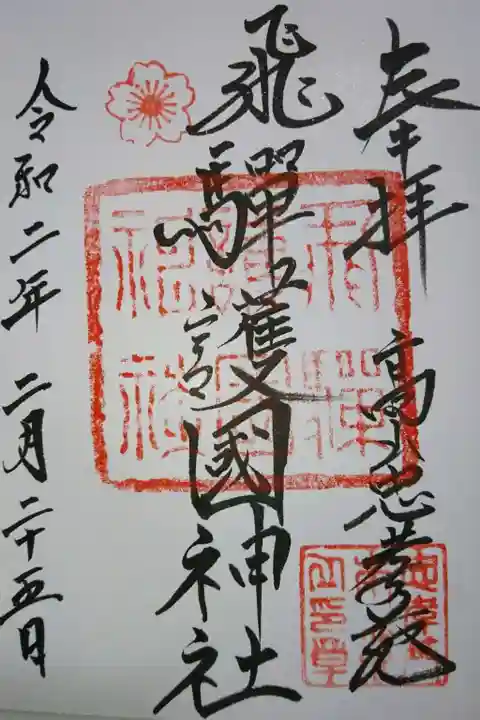 奉拝 高山忠孝苑
飛驒護國神社
令和二年 二月二十五日